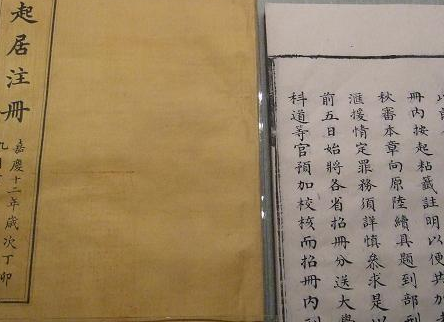 起居注冊
嘉慶十二年歲次丁卯
冊內按起粘籤註明以便
秋審本章向原陸續具題到部
滙援情定罪務須詳慎參求是以
前五日始將各省招冊分送大
科道等官預加校核而招冊內